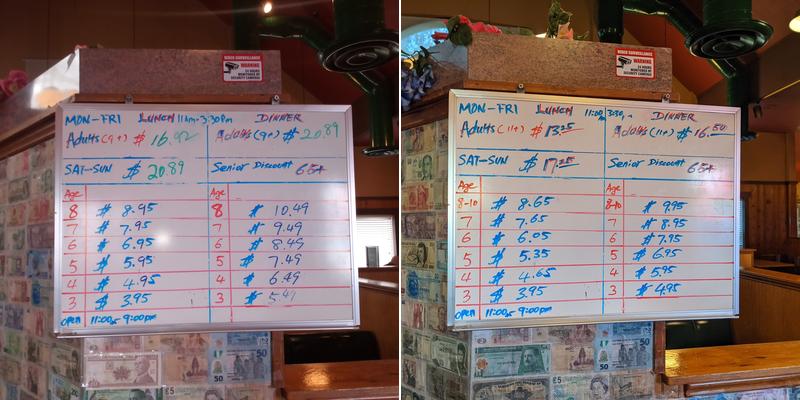 VIDEO SURVEILLANCE
WARNING
24 HOURS
MONITORED BY
SECURITY CAMERAS
MON-FRI LUNCH 11am-3:30pm DINNER
Adults (9+) $ 16.92 Adults (9+) $ 20.89
SAT-SUN $ 20.89 Senior Discount 65+
Age Age
8 $ 8.95 8 $ 10.49
7 $ 7.95 7 $ 9.49
6 $ 6.95 6 $ 8.49
5 $ 5.95 5 $ 7.49
4 $ 4.95 4 $ 6.49
3 $ 3.95 3 $ 5.47
OPEN 11:00 9:00pm
50
£5
50
VIDEO SURVEILLANCE
WARNING
24 HOURS
MONITORED BY
SECURITY CAMERAS
MON-FRI LUNCH 11:00 3:30 DINNER
Adults (11+) $ 13.25 Adults (11+) $ 16.50
SAT-SUN $ 17.25 Senior Discount 65+
Age Age
8-10 $ 8.65 8-10 $ 9.95
7 $ 7.65 7 $ 8.95
6 $ 6.05 6 $ 7.95
5 $ 5.35 5 $ 6.95
4 $ 4.65 4 $ 5.95
3 $ 3.95 3 $ 4.95
OPEN 11:00 9:00pm
50
50